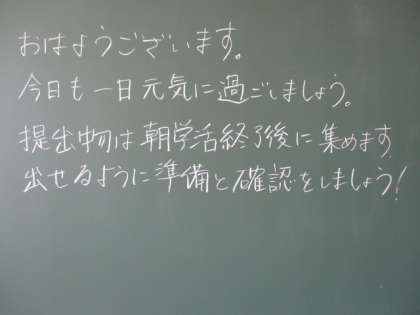 おはようございます。
今日も一日元気に過ごしましょう。
提出物は朝学活終了後に集めます
出せるように準備と確認をしましょう!